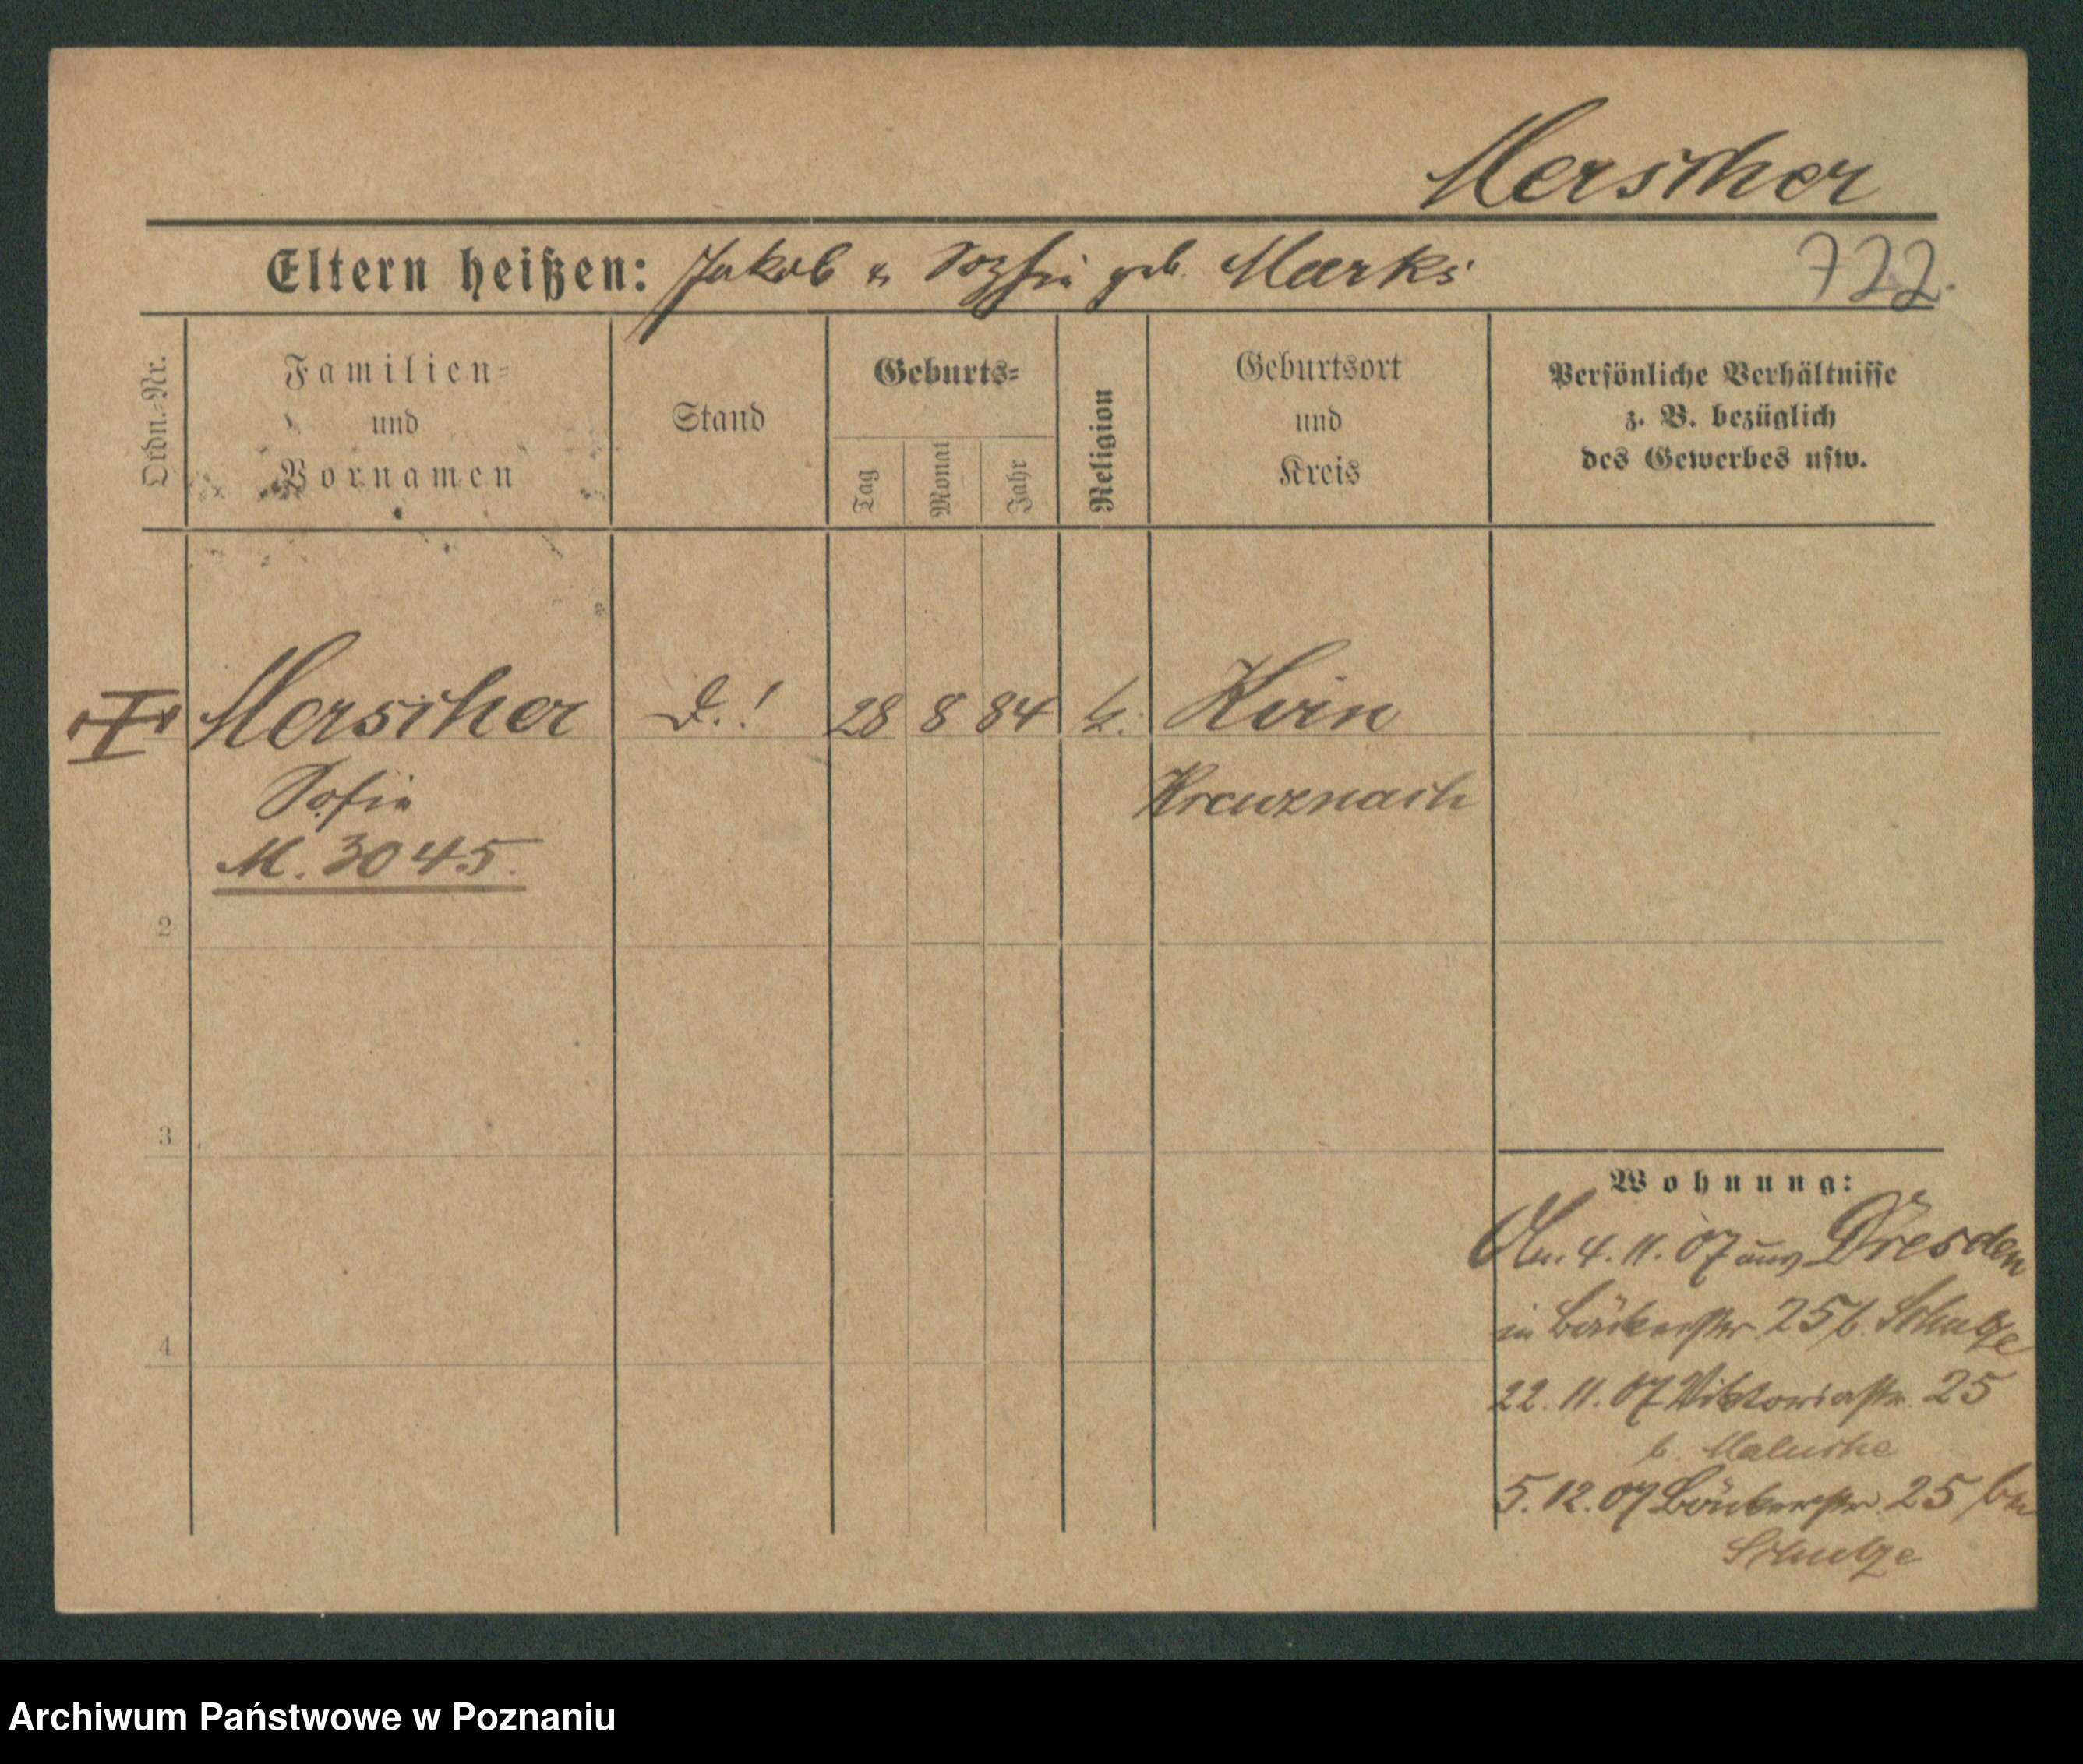 Merscher
Eltern heißen: Jakob u Sophie geb. Marks
722.
Ordn.-Nr.
Familien-
und
Vornamen
Stand
Geburts-
Tag
Monat
Jahr
Religion
Geburtsort
und
Kreis
Persönliche Verhältnisse
z. B. bezüglich
des Gewerbes usw.
Merscher 28 8 84 k. Kirn
Sofie Kreuznach
M. 3045.
2
3
4
Wohnung:
4. 11. 07 aus Dresden
in Bäckerstr. 25 b. Schulze
22. 11. 07 Viktoriastr. 25
b.
5. 12. 07 Bäckerstr. 25 bei
Schulze
Archiwum Państwowe w Poznaniu